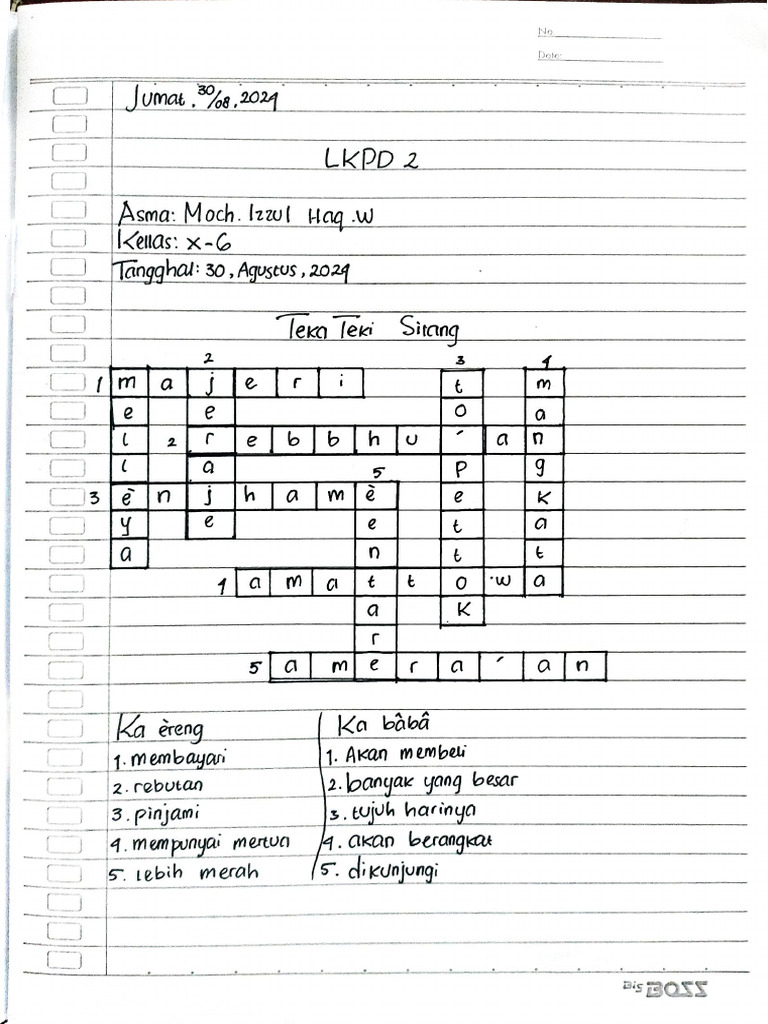 No.
Date:
Jumat, 30/08, 2024
LKPD 2
Asma: Moch. Izzul Haq .W
Kellas: X-6
Tangghal: 30, Agustus, 2024
Teka Teki Sirang
2 3 4
1 m a j e r i t m
e e o a
l 2 r e b b h u ' a n
l a 5 p g
3 è n j h a m è e k
y e e t a
a n t t
4 a m a t t o w a
a k
r
5 a m e r a ' a n
Ka èreng Ka bâbâ
1. membayari 1. Akan membeli
2. rebutan 2. banyak yang besar
3. pinjami 3. tujuh harinya
4. mempunyai mertua 4. akan berangkat
5. lebih merah 5. dikunjungi
Bis BOSS